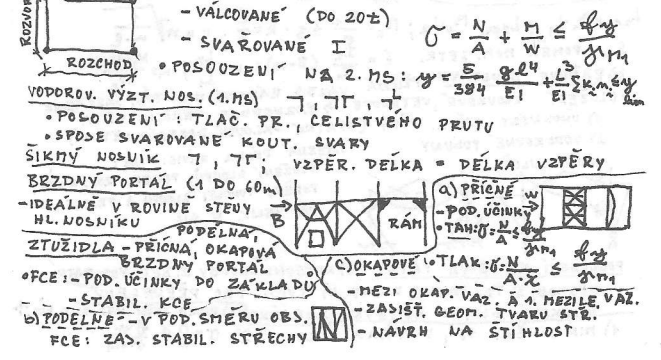 ROZVOR
ROZCHOD
- VÁLCOVANÉ (DO 20t)
- SVAŘOVANÉ I
σ = N/A + M/W ≤ fy/γM1
• POSOUZENÍ NA 2. MS: y = 5/384 g·l⁴/EI + L³/EI Σ k·n ≤ y lim
VODOROV. VÝZT. NOS. (1. MS)
• POSOUZENÍ: TLAČ. PR. CELISTVÉHO PRUTU
• SPOJE SVAROVANÉ KOUT. SVARY
ŠIKMÝ NOSNÍK ; VZPĚR. DÉLKA = DÉLKA VZPĚRY
BRZDNÝ PORTÁL (1 DO 60m)
- IDEÁLNĚ V ROVINĚ STĚNY
HL. NOSNÍKU
B
RÁM
a) PŘÍČNÉ
- POD. ÚČINKY
• TAH: σ = N/A ≤ fy/γM1
W
ZTUŽIDLA - PODÉLNÁ,
PŘÍČNÁ, OKAPOVÁ
BRZDNÝ PORTÁL
• FCE: - POD. ÚČINKY DO ZÁKLADŮ
- STABIL. KCE
b) PODÉLNÉ - V POD. SMĚRU OBJ.
FCE: ZAJ. STABIL. STŘECHY
c) OKAPOVÉ
• TLAK: σ = N/A·χ ≤ fy/γM1
- MEZI OKAP. VAZ. A 1. MEZILE. VAZ.
- ZAJIŠŤ. GEOM. TVARU STŘ.
- NÁVRH NA ŠTÍHLOST